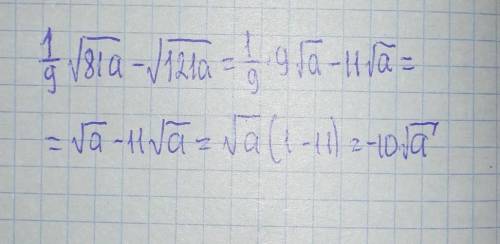 1/9 √81a - √121a = 1/9 · 9√a - 11√a =
= √a - 11√a = √a (1 - 11) = -10√a